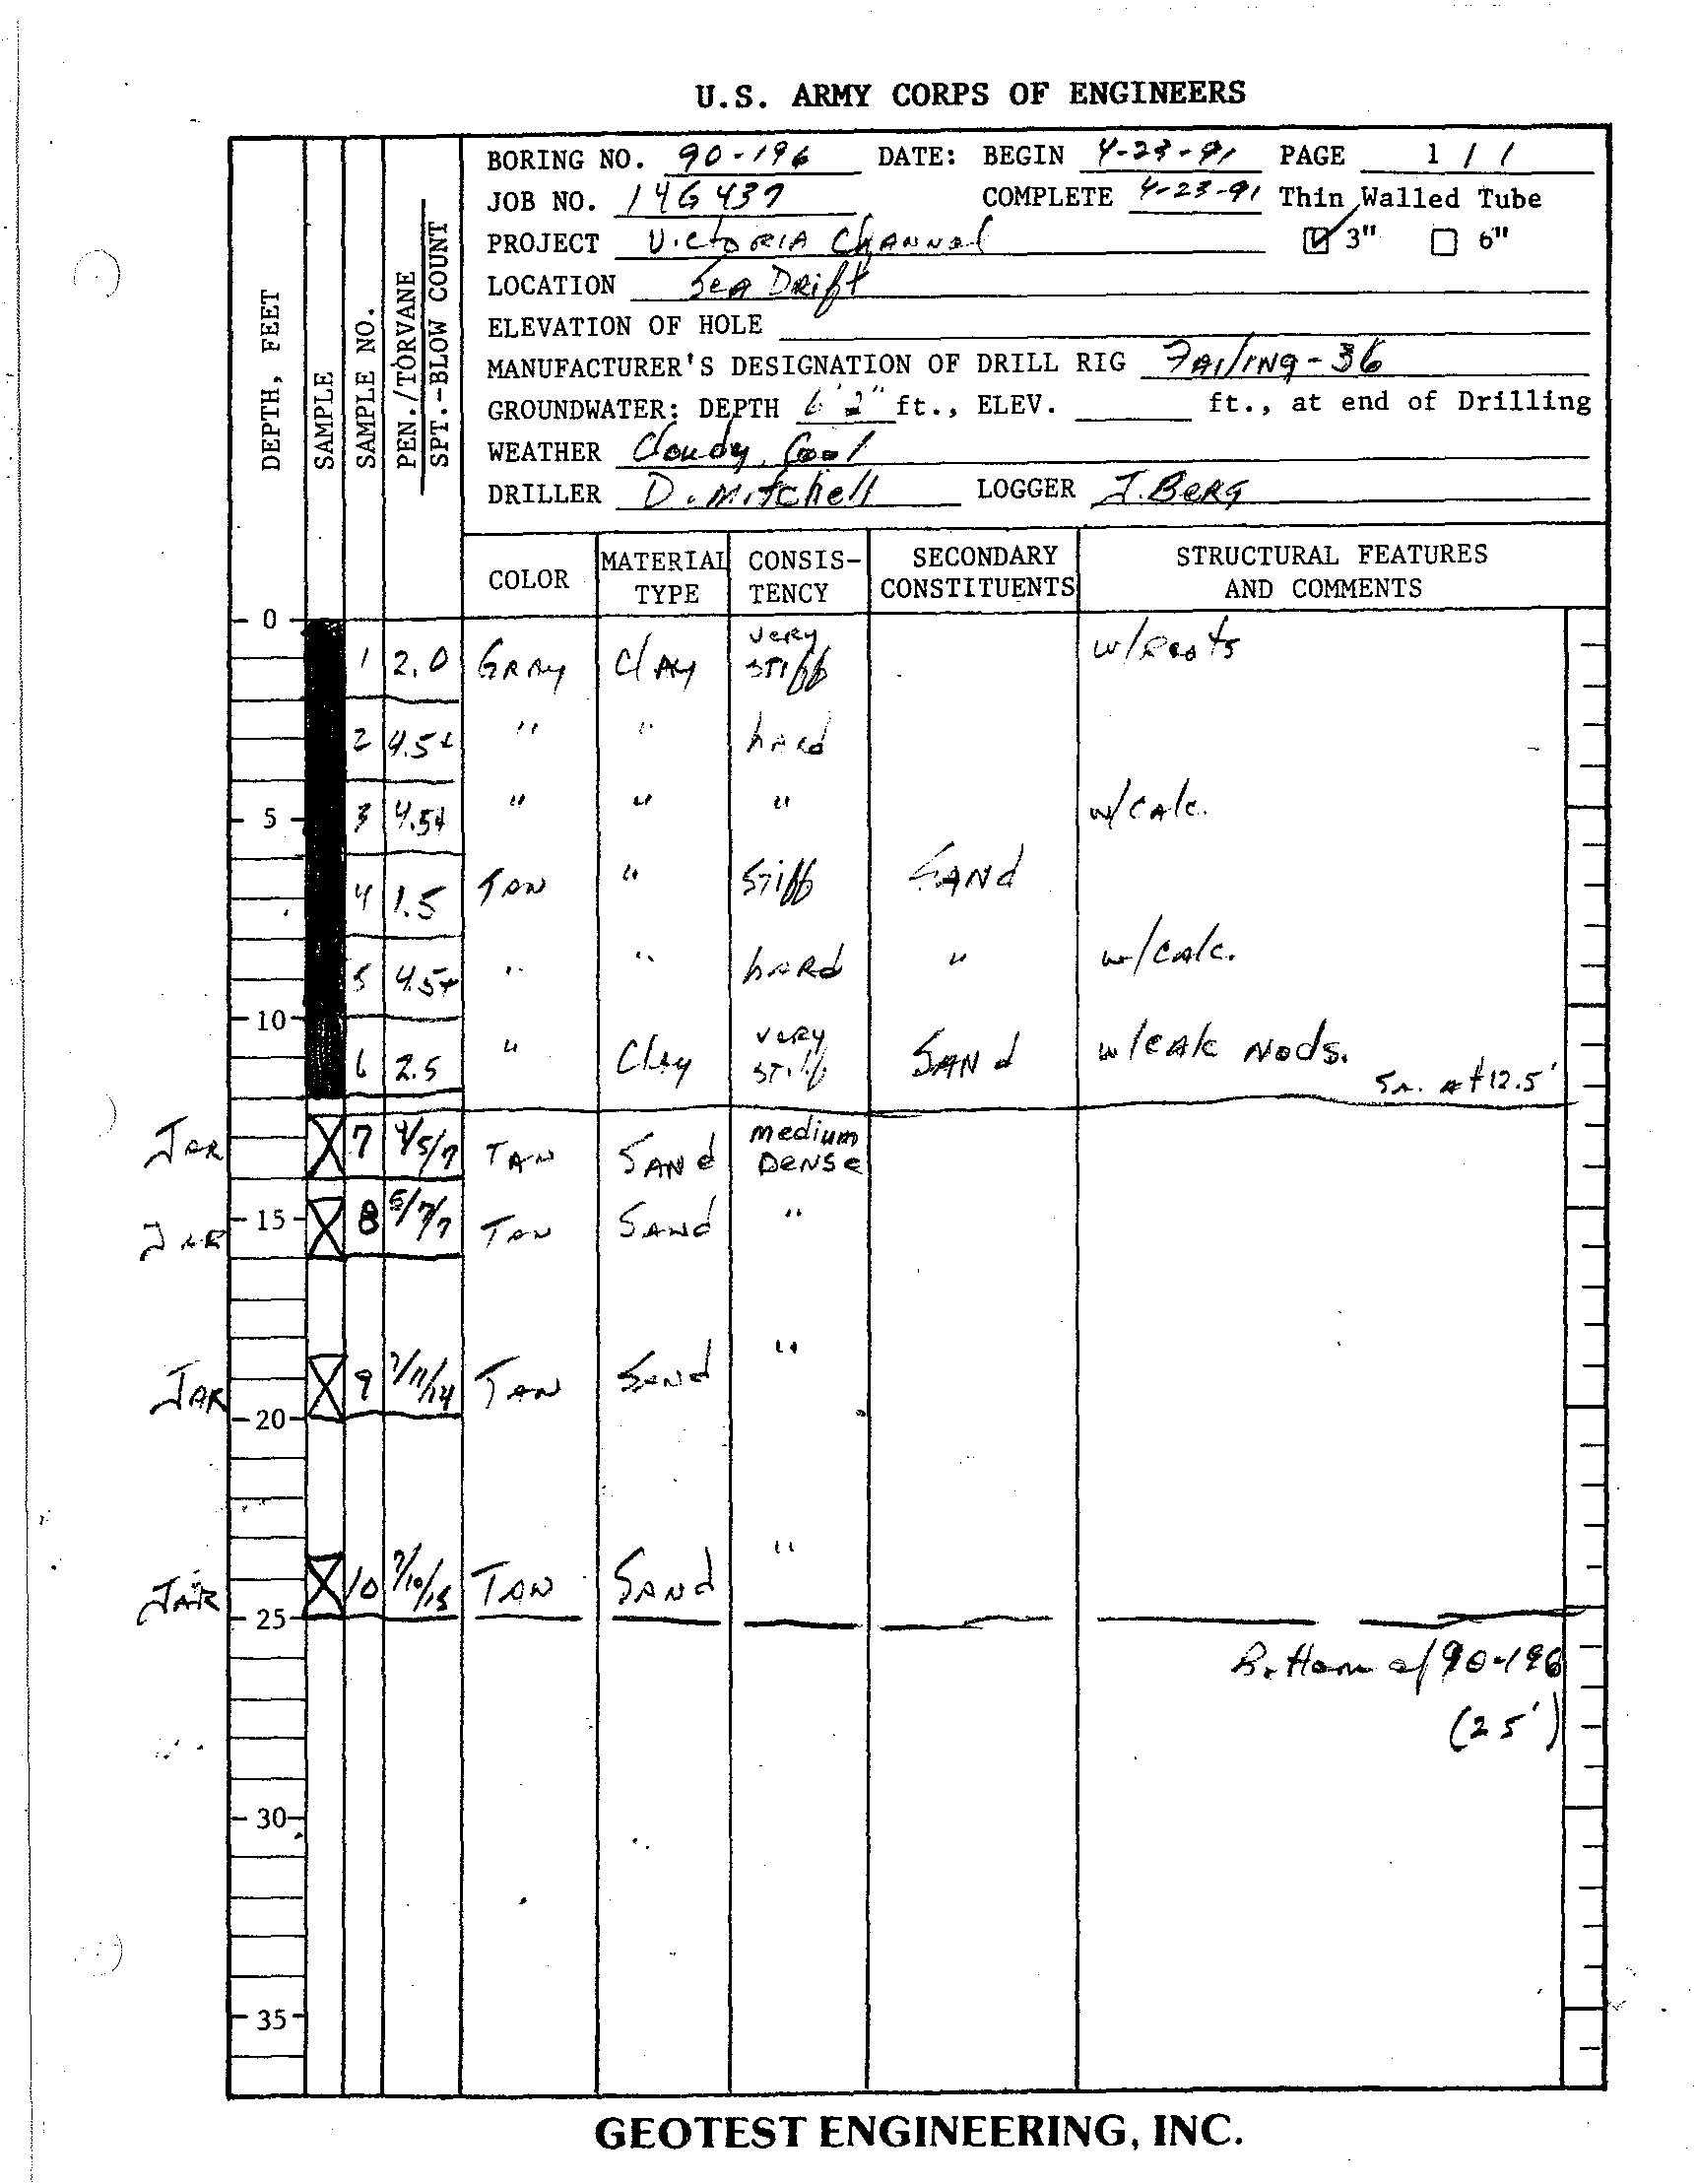 U.S. ARMY CORPS OF ENGINEERS
BORING NO. 90-196 DATE: BEGIN 4-23-91 PAGE 1 / 1
JOB NO. 14G437 COMPLETE 4-23-91 Thin Walled Tube
PROJECT VictoRIA ChANNel 3" 6"
LOCATION SeA DRift
ELEVATION OF HOLE
MANUFACTURER'S DESIGNATION OF DRILL RIG FAilING-36
GROUNDWATER: DEPTH 6'2" ft., ELEV. ft., at end of Drilling
WEATHER Cloudy, Cool
DRILLER D. Mitchell LOGGER J. BeRG
DEPTH, FEET
SAMPLE
SAMPLE NO.
PEN./TORVANE
SPT.-BLOW COUNT
COLOR MATERIAL TYPE CONSIS-TENCY SECONDARY CONSTITUENTS STRUCTURAL FEATURES AND COMMENTS
0
1 2.0 GRAy ClAy veRy stiff w/Roots
2 4.5+ " " hard
5 3 4.5+ " " " w/cAlc.
4 1.5 TAN " Stiff SANd
5 4.5+ " " hARd " w/calc.
10
6 2.5 " Clay veRy stiff SANd w/calc Nods.
Sa. at 12.5'
JAR 7 4/5/7 TAN SANd medium DeNSe
JAR 15 8 5/7/7 TAN SANd "
JAR 9 7/11/14 TAN SANd "
20
JAR 10 7/10/15 TAN SANd "
25
Bottom of 90-196
(25')
30
35
GEOTEST ENGINEERING, INC.